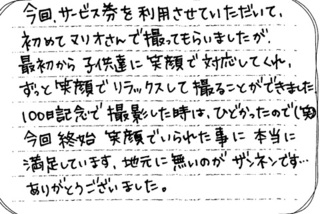 今回、サービス券を利用させていただいて、
初めてマリオさんで撮ってもらいましたが、
最初から子供達に笑顔で対応してくれ、
ずっと笑顔でリラックスして撮ることができました
100日記念で撮影した時は、ひどかったので(笑)
今回終始笑顔でいられた事に本当に
満足しています。地元に無いのがザンネンです…
ありがとうございました。